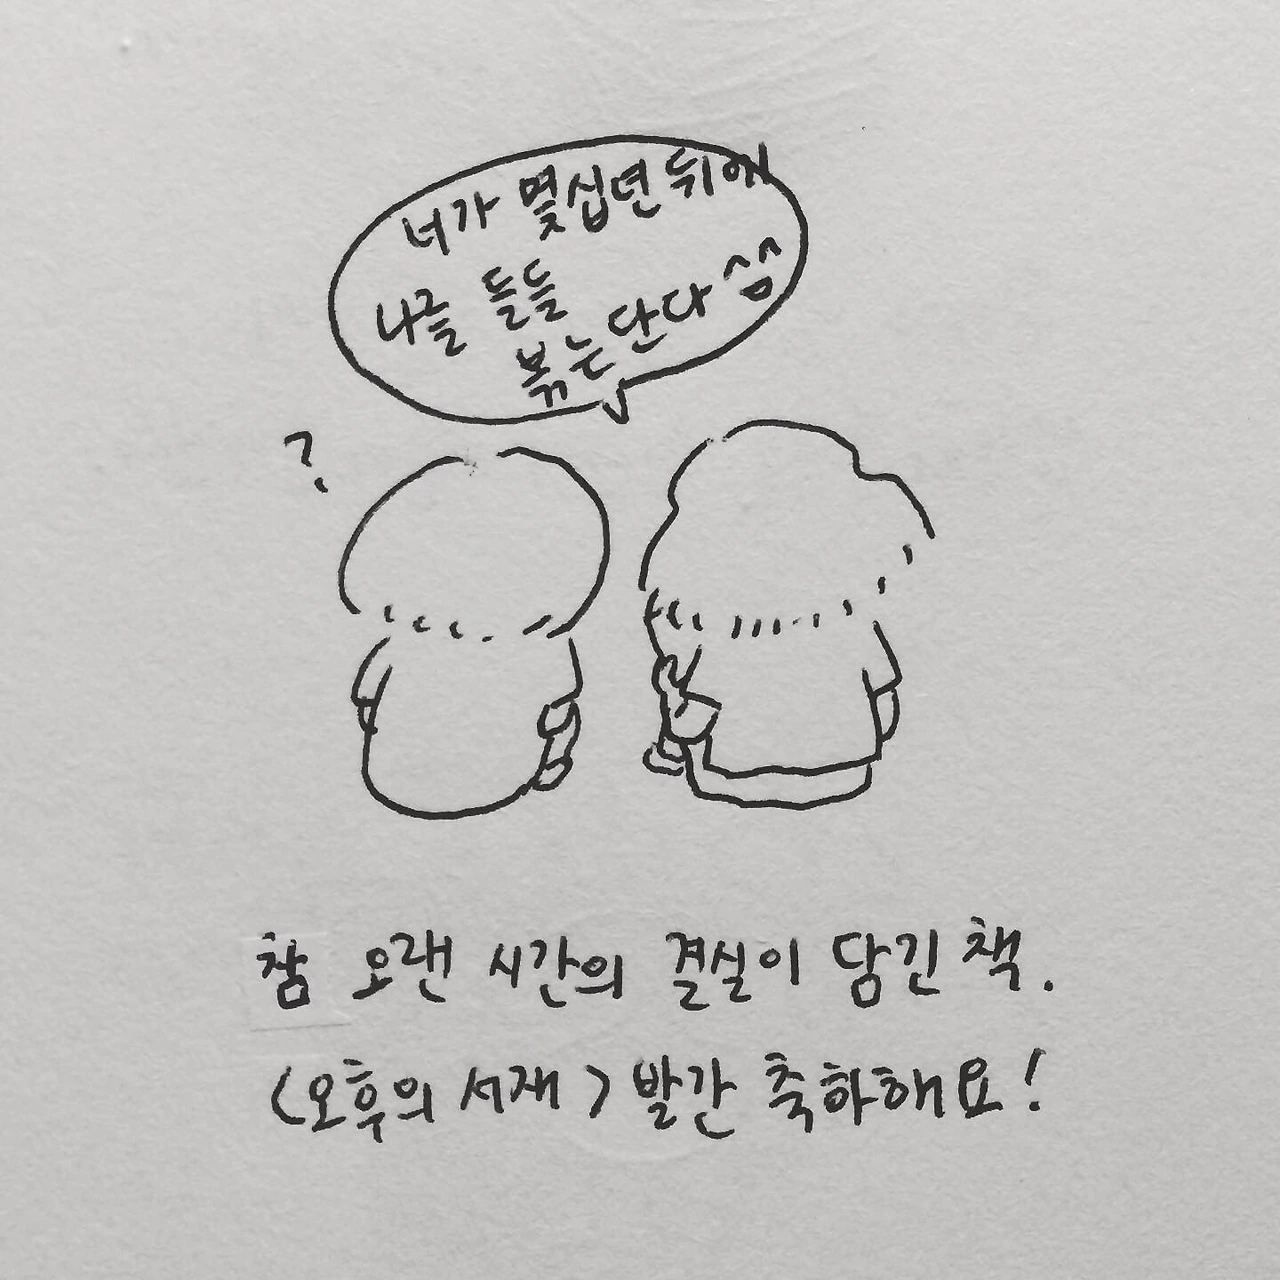 너가 몇십년 뒤에
나를 들들
볶는단다 ^^
?
참 오랜 시간의 결실이 담긴 책.
<오후의 서재> 발간 축하해요!